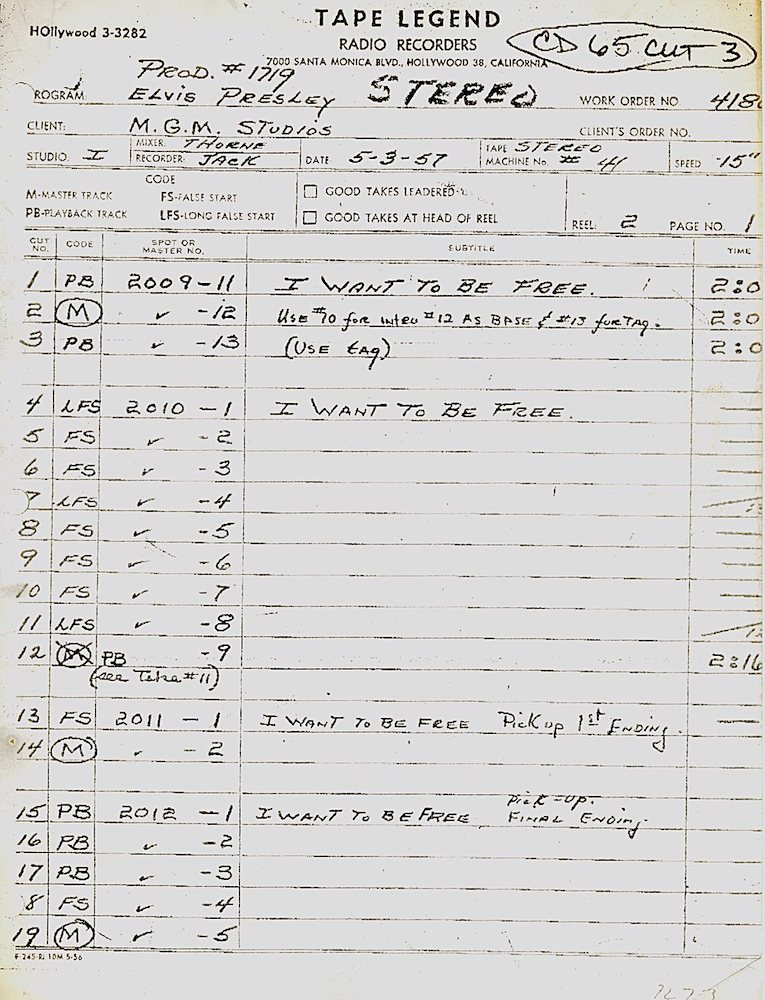 TAPE LEGEND
HOllywood 3-3282
RADIO RECORDERS
CD 65 CUT 3
7000 SANTA MONICA BLVD., HOLLYWOOD 38, CALIFORNIA
PROD. #1719
ROGRAM ELVIS PRESLEY STEREO WORK ORDER NO 418
CLIENT: M.G.M. STUDIOS CLIENT'S ORDER NO.
STUDIO. I MIXER: THORNE RECORDER: JACK DATE 5-3-57 TAPE MACHINE No. STEREO # 41 SPEED 15"
CODE
M-MASTER TRACK FS-FALSE START GOOD TAKES LEADERED
PB-PLAYBACK TRACK LFS-LONG FALSE START GOOD TAKES AT HEAD OF REEL REEL: 2 PAGE NO. 1
CUT NO. CODE SPOT OR MASTER NO. SUBTITLE TIME
1 PB 2009-11 I WANT TO BE FREE. 2:0
2 M ✓ -12 USE #10 for intro #12 AS BASE & #13 for TAG. 2:0
3 PB ✓ -13 (USE tag) 2:0
4 LFS 2010 -1 I WANT TO BE FREE.
5 FS ✓ -2
6 FS ✓ -3
7 LFS ✓ -4
8 FS ✓ -5
9 FS ✓ -6
10 FS ✓ -7
11 LFS ✓ -8
12 M PB -9 2:16
(see Take #11)
13 FS 2011 -1 I WANT TO BE FREE Pick up 1st ENDING.
14 M ✓ -2
15 PB 2012 -1 I WANT TO BE FREE Pick-up. FINAL ENDING.
16 PB ✓ -2
17 PB ✓ -3
8 FS ✓ -4
19 M ✓ -5
F-245-R: 10M 5-56